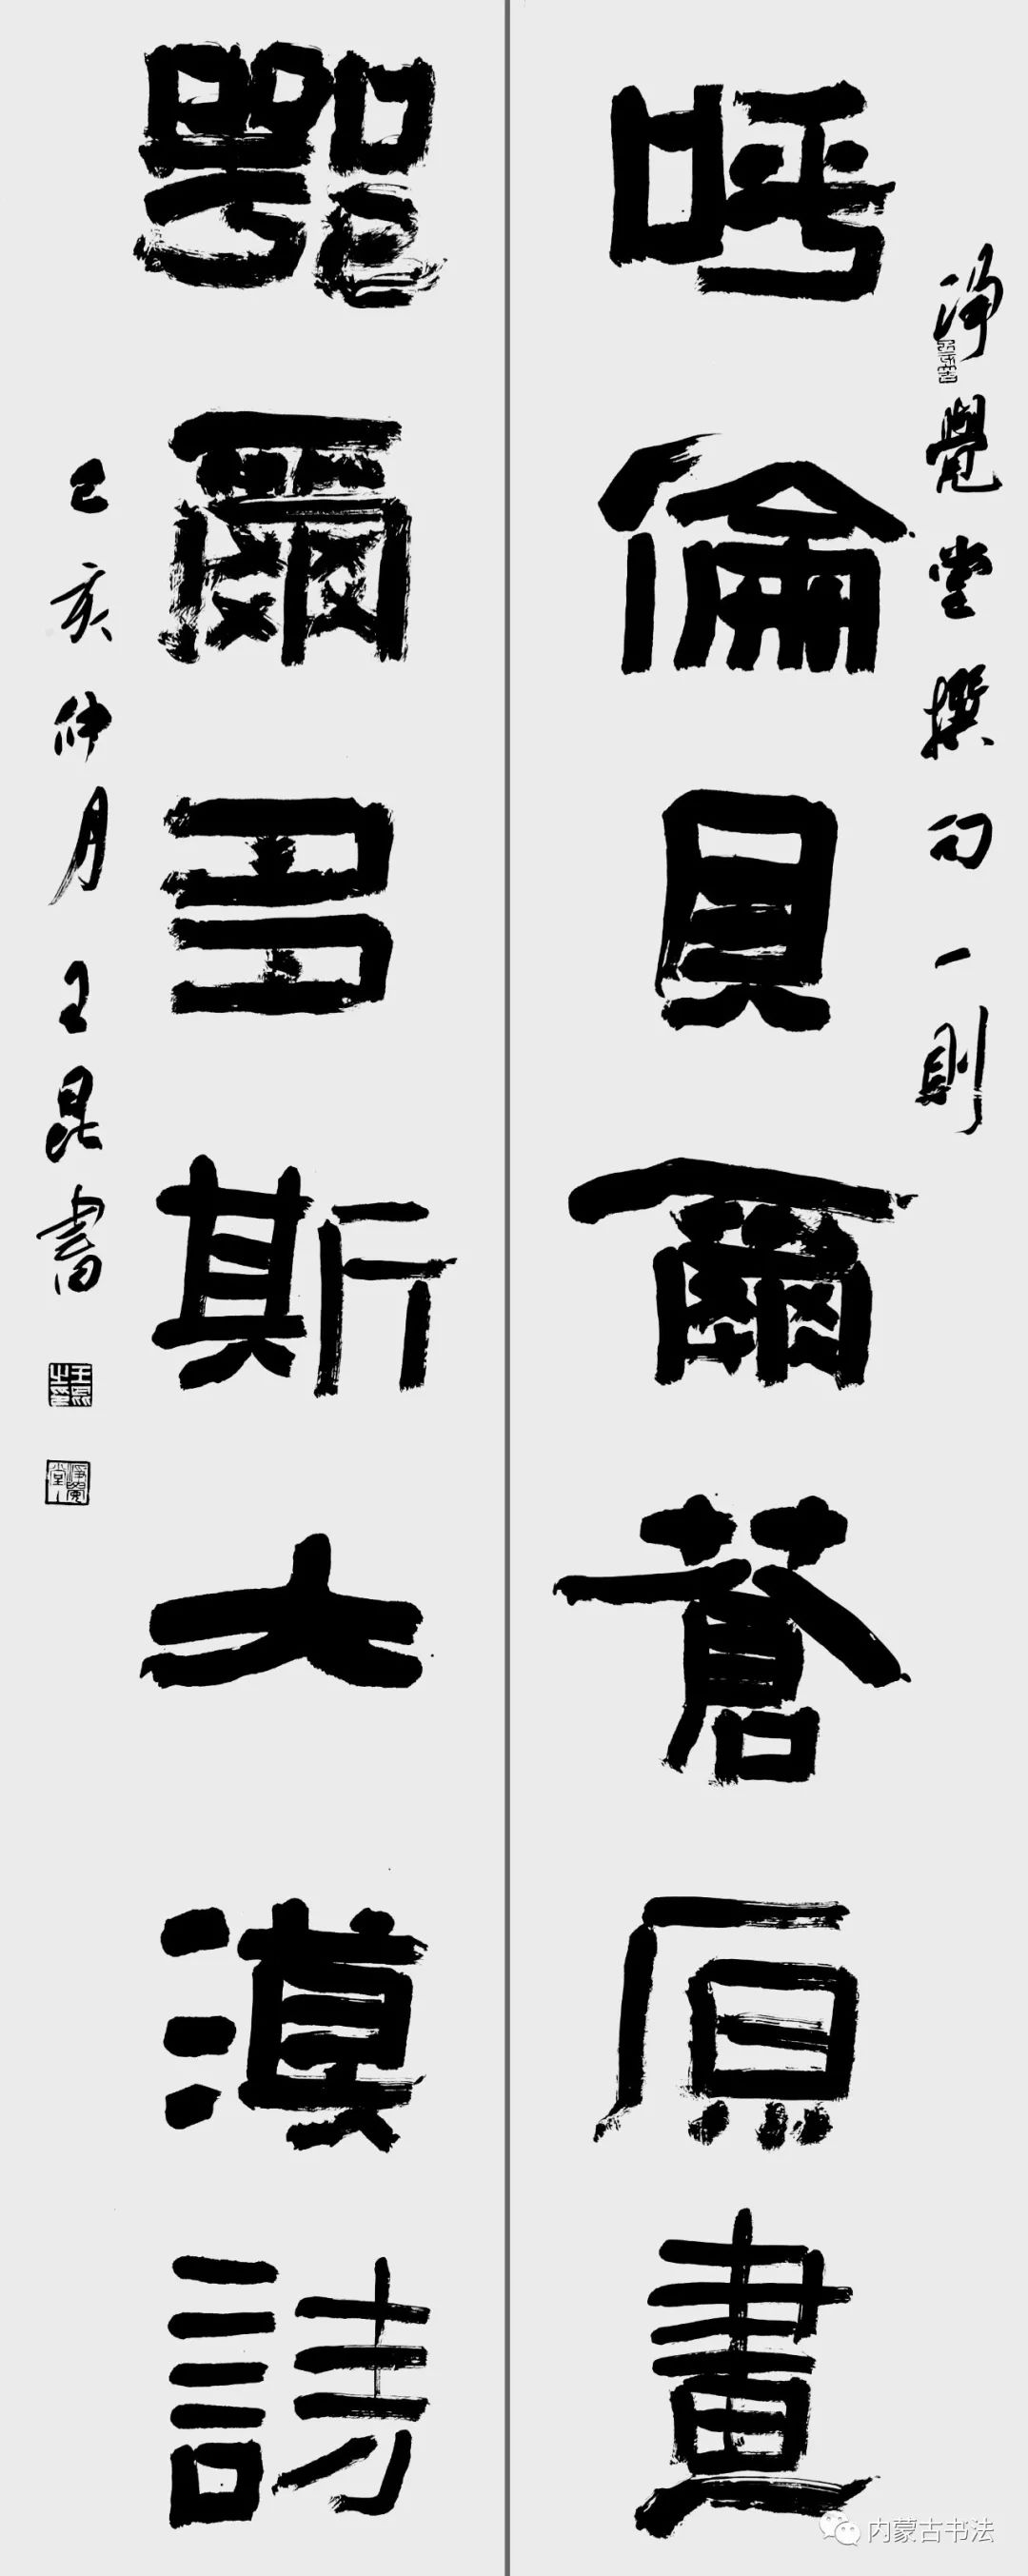 淨覺堂撰句一則
呼倫貝爾蒼原畫
鄂爾多斯大漠詩
己亥仲月王昆書
王昆之印
淨覺堂
内蒙古书法